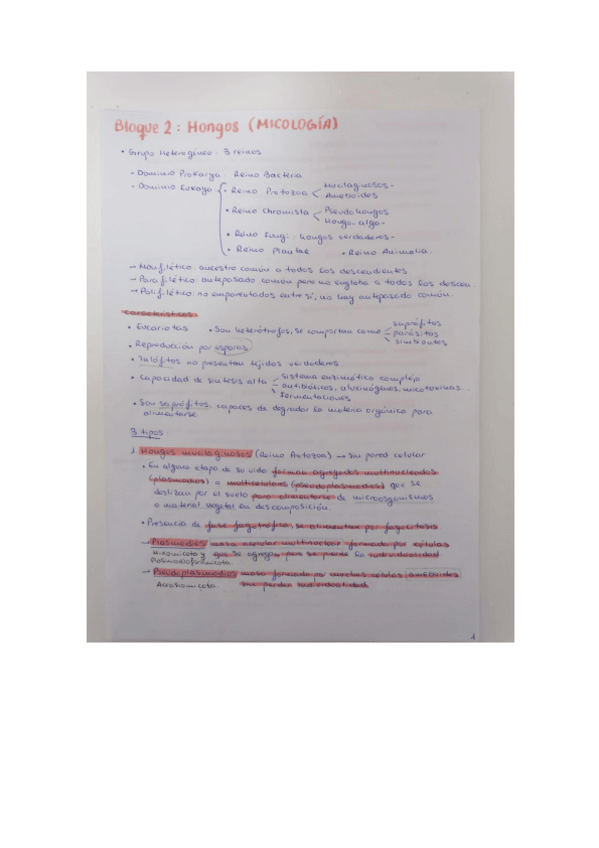 Bloque 2: Hongos (MICOLOGÍA)
• Grupo Heterogéneo: 3 reinos
- Dominio Prokarya: Reino Bacteria
- Dominio Eukaya • Reino Protozoa Mucilaginosos -
Ameboides
• Reino Chromista Pseudohongos
Hongo-algo -
• Reino Fungi: hongos verdaderos -
• Reino Plantae • Reino Animalia.
→ Monofilético: ancestro común a todos los descendientes
→ Parafilético: antepasado común pero no engloba a todos los descen.
→ Polifilético: no emparentados entre sí, no hay antepasado común.
Características
• Eucariotas • Son heterótrofos, se comportan como saprófitos
parásitos
simbiontes
• Reproducción por esporas
• Talófitos no presentan tejidos verdaderos
• Capacidad de síntesis alta sistema enzimático complejo
antibióticos, alucinógenos, micotoxinas
fermentaciones
• Son saprófitos, capaces de degradar la materia orgánica para
alimentarse.
3 tipos:
1. Hongos mucilaginosos (Reino Protozoa) → Sin pared celular
• En alguna etapa de su vida forman agregados multinucleados
(plasmodios) o multicelulares (pseudoplasmodios) que se
deslizan por el suelo para alimentarse de microorganismos
o material vegetal en descomposición.
• Presencia de fase fagotrófica, se alimentan por fagocitosis
→ Plasmodios masa celular multinuclear formada por células
Mixomicota y que se agregan pero se pierde la individualidad
Plasmodioforomicota.
→ Pseudoplasmodios masa formada por muchas células ameboides
Acrasiomicota sin perder individualidad
1